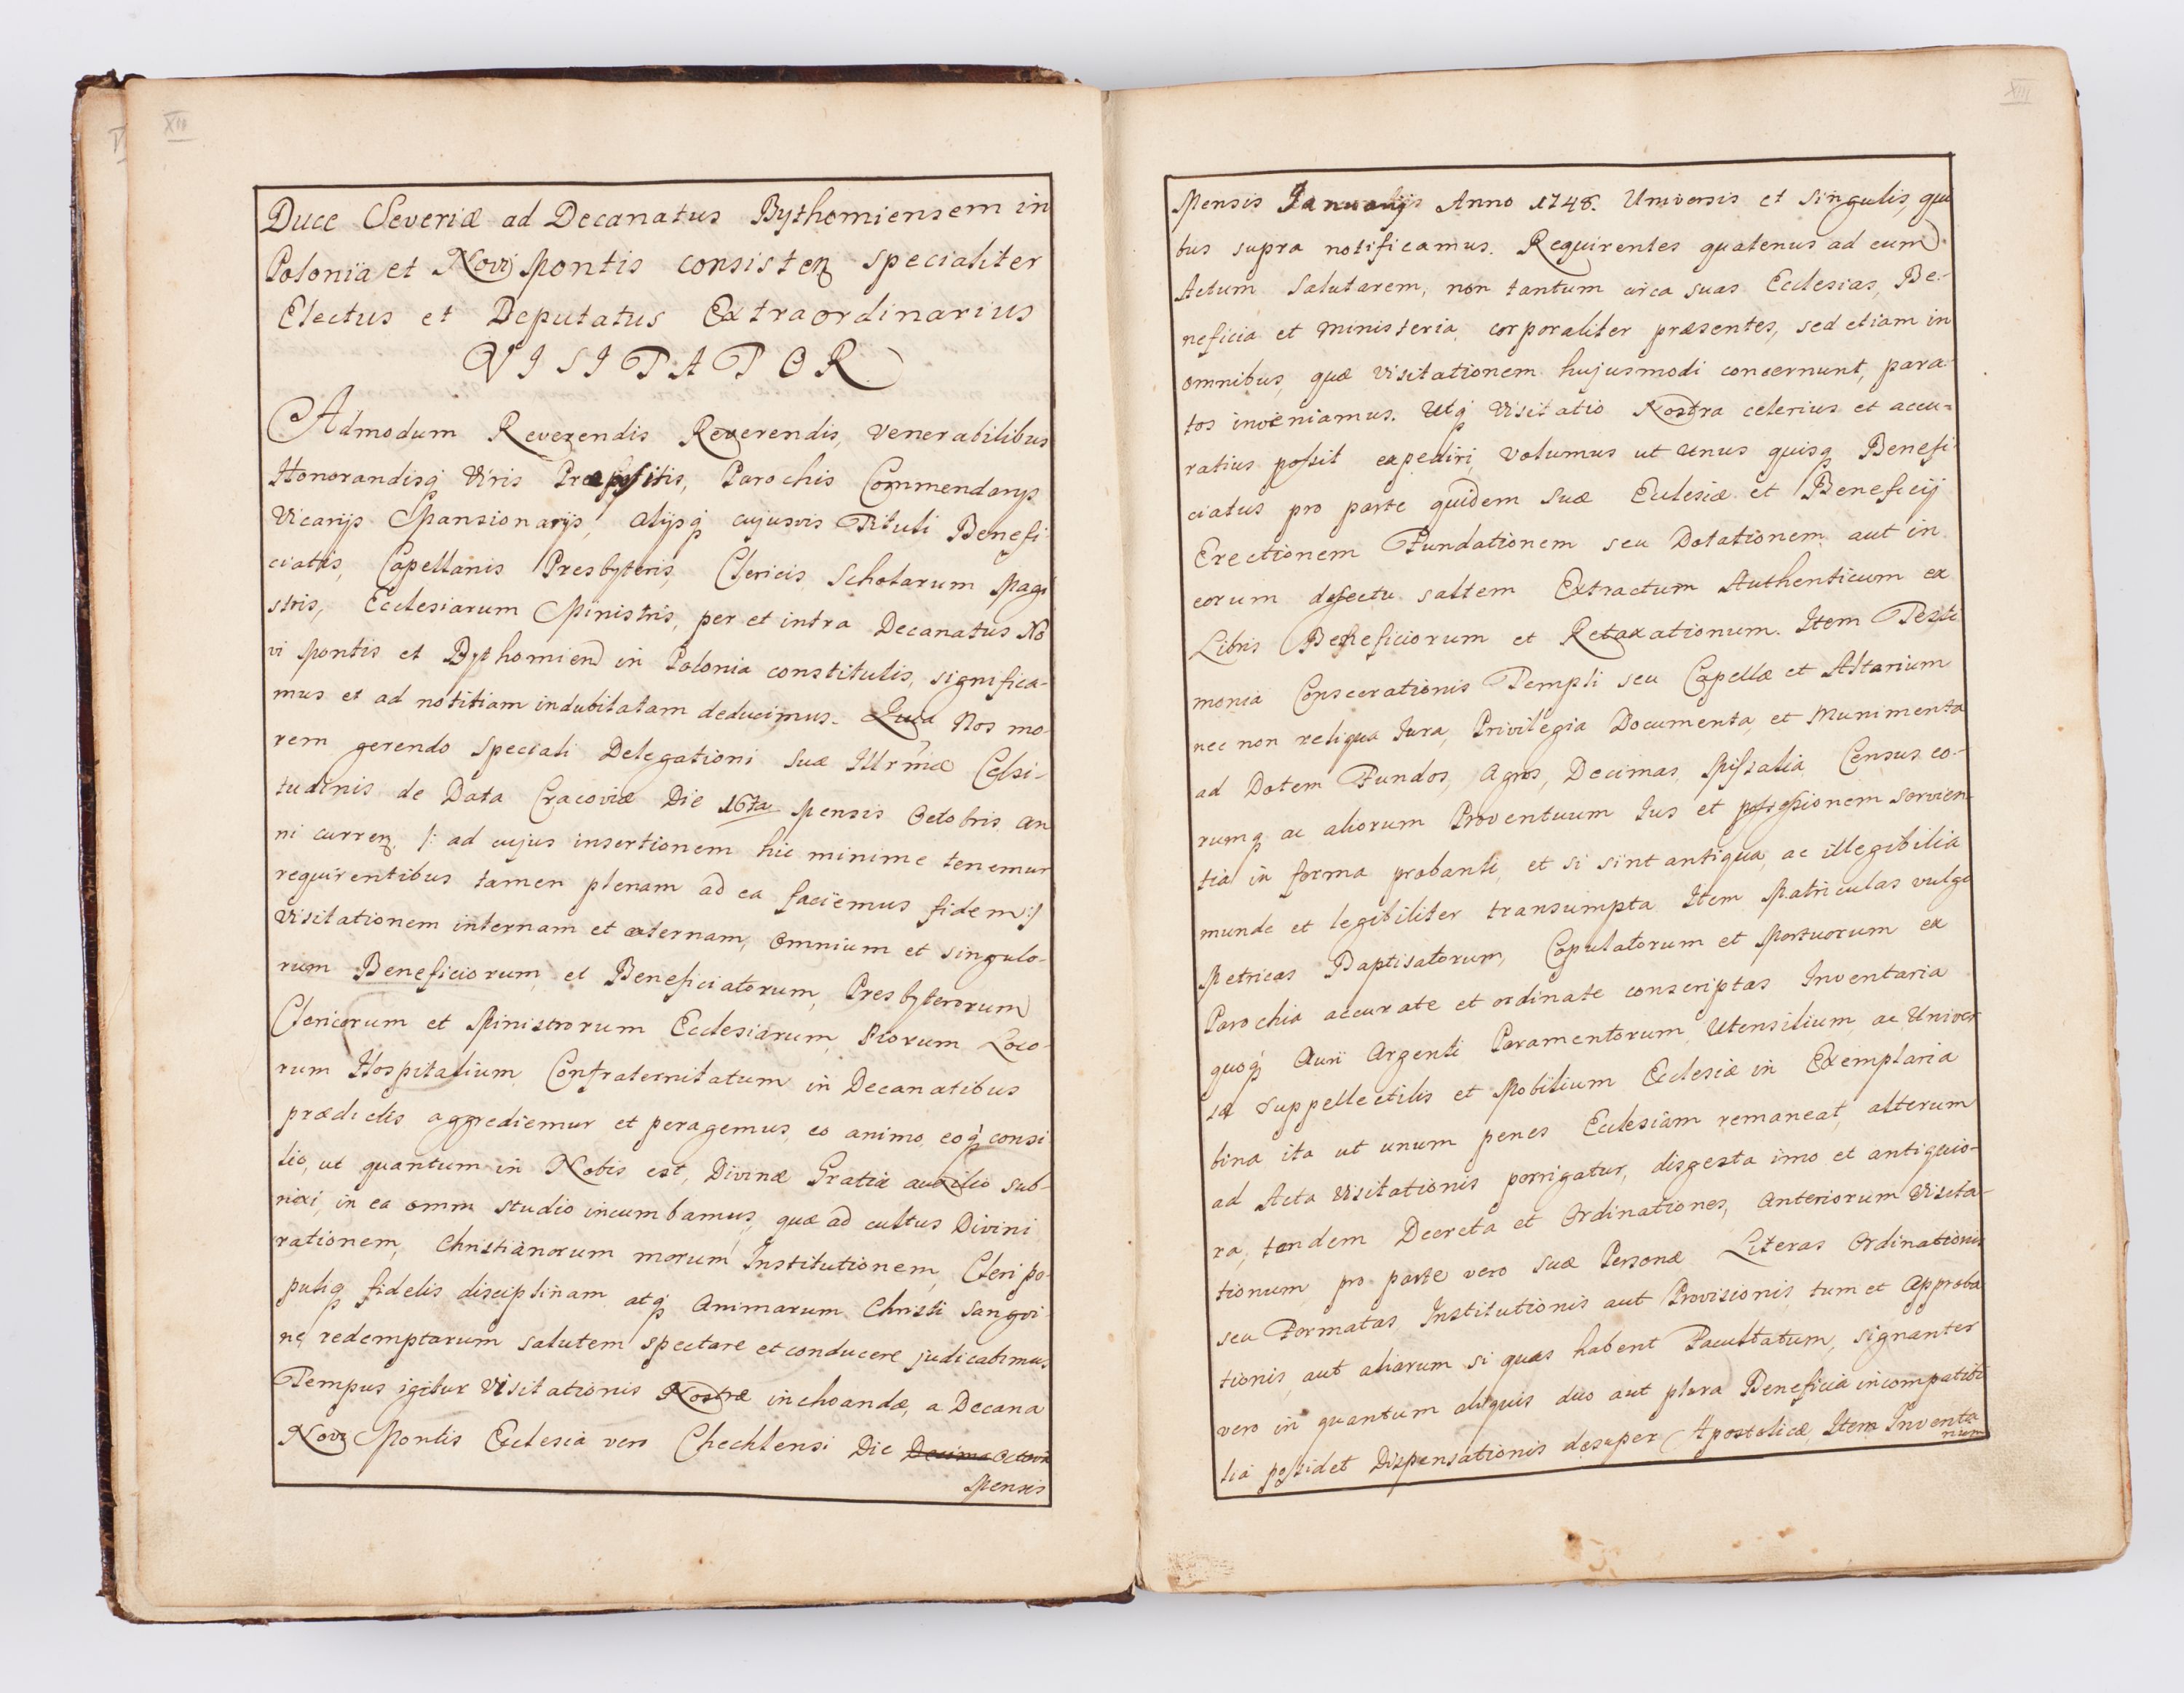 XII
Duce Severiæ ad Decanatus Bythomiensem in
Polonia et Novi Montis consisten specialiter
Electus et Deputatus Extraordinarius
VISITATOR
Admodum Reverendis Reverendis, Venerabilibus
Honorandisq Viris Præpositis, Parochis Commendarijs
Vicarijs Mansionarijs, alijsq cujusvis Tituli Benefi
ciatis, Capellanis Presbyteris, Clericis Scholarum Magi
stris, Ecclesiarum Ministris, per et intra Decanatus No
vi Montis et Bythomien in Polonia constitutis, significa-
mus et ad notitiam indubitatam deducimus. Quia Nos mo
rem gerendo speciali Delegationi suæ Illrmæ Celsi-
tudinis de Data Cracoviæ Die 16ta Mensis Octobris an
ni curren. /: ad cujus insertionem hic minime tenemur
requirentibus tamen plenam ad ea faciemus fidem :/
Visitationem internam et externam, omnium et singulo-
rum Beneficiorum et Beneficiatorum, Presbyterorum
Clericorum et Ministrorum Ecclesiarum Piorum Loco-
rum Hospitalium Confraternitatum in Decanatibus
prædictis aggrediemur et peragemus, eo animo, eoq consi
lio, ut quantum in Nobis est, Divinæ Gratiæ auxilio sub-
nixi, in ea omni studio incumbamus, quæ ad cultus Divini
rationem, Christianorum morum Institutionem, Cleri po-
puliq fidelis disciplinam atq Animarum Christi Sangvi-
ne redemptarum salutem spectare et conducere judicabimus
Tempus igitur Visitationis Nostræ inchoandæ, a Decana
Novi Montis Ecclesia vero Chechlensi Die Decima Octava
Mensis
XIII
Mensis Januarijs Anno 1748. Universis et singulis, qui
bus supra notificamus. Requirentes quatenus ad eum
Actum Salutarem, non tantum circa suas Ecclesias, Be-
neficia et ministeria, corporaliter præsentes, sed etiam in
omnibus, quæ visitationem hujusmodi concernunt, para
tos inveniamus. Utq Visitatio Nostra celerius et accu-
ratius possit expediri, volumus ut unus quisq Benefi
ciatus pro parte quidem Suæ Ecclesiæ et Beneficij
Erectionem Fundationem seu Dotationem aut in
eorum defectu saltem Extractum Authenticum ex
Libris Beneficiorum et Retaxationum. Item Testi
monia Consecrationis Templi seu Capellæ et Altarium
nec non reliqua Jura, Privilegia Documenta, et Munimenta
ad Dotem Fundos, Agros, Decimas, Missalia, Census eo-
rumq ac aliorum Proventuum Jus et possessionem servien-
tia in forma probanti, et si sint antiqua, ac illegibilia
munde et legibiliter transumpta Item Matriculas vulgo
Metricas Baptisatorum, Copulatorum et Mortuorum ex
Parochia accurate et ordinate conscriptas Inventaria
quoq Auri Argenti Paramentorum, Utensilium, ac Univer
sæ Suppellectilis et Mobilium Ecclesiæ in Exemplaria
bina ita ut unum penes Ecclesiam remaneat, alterum
ad Acta Visitationis porrigatur, disgesta imo et antiquio-
ra, tandem Decreta et Ordinationes, Anteriorum Visita-
tionum, pro parte vero suæ Personæ Literas Ordinationis
seu Formatas Institutionis aut Provisionis, tum et Approba
tionis, aut aliarum si quas habent Facultatum, signanter
vero in quantum aliquis duo aut plura Beneficia incompatibi
lia possidet Dispensationis desuper Apostolicæ, Item Inventa
rium